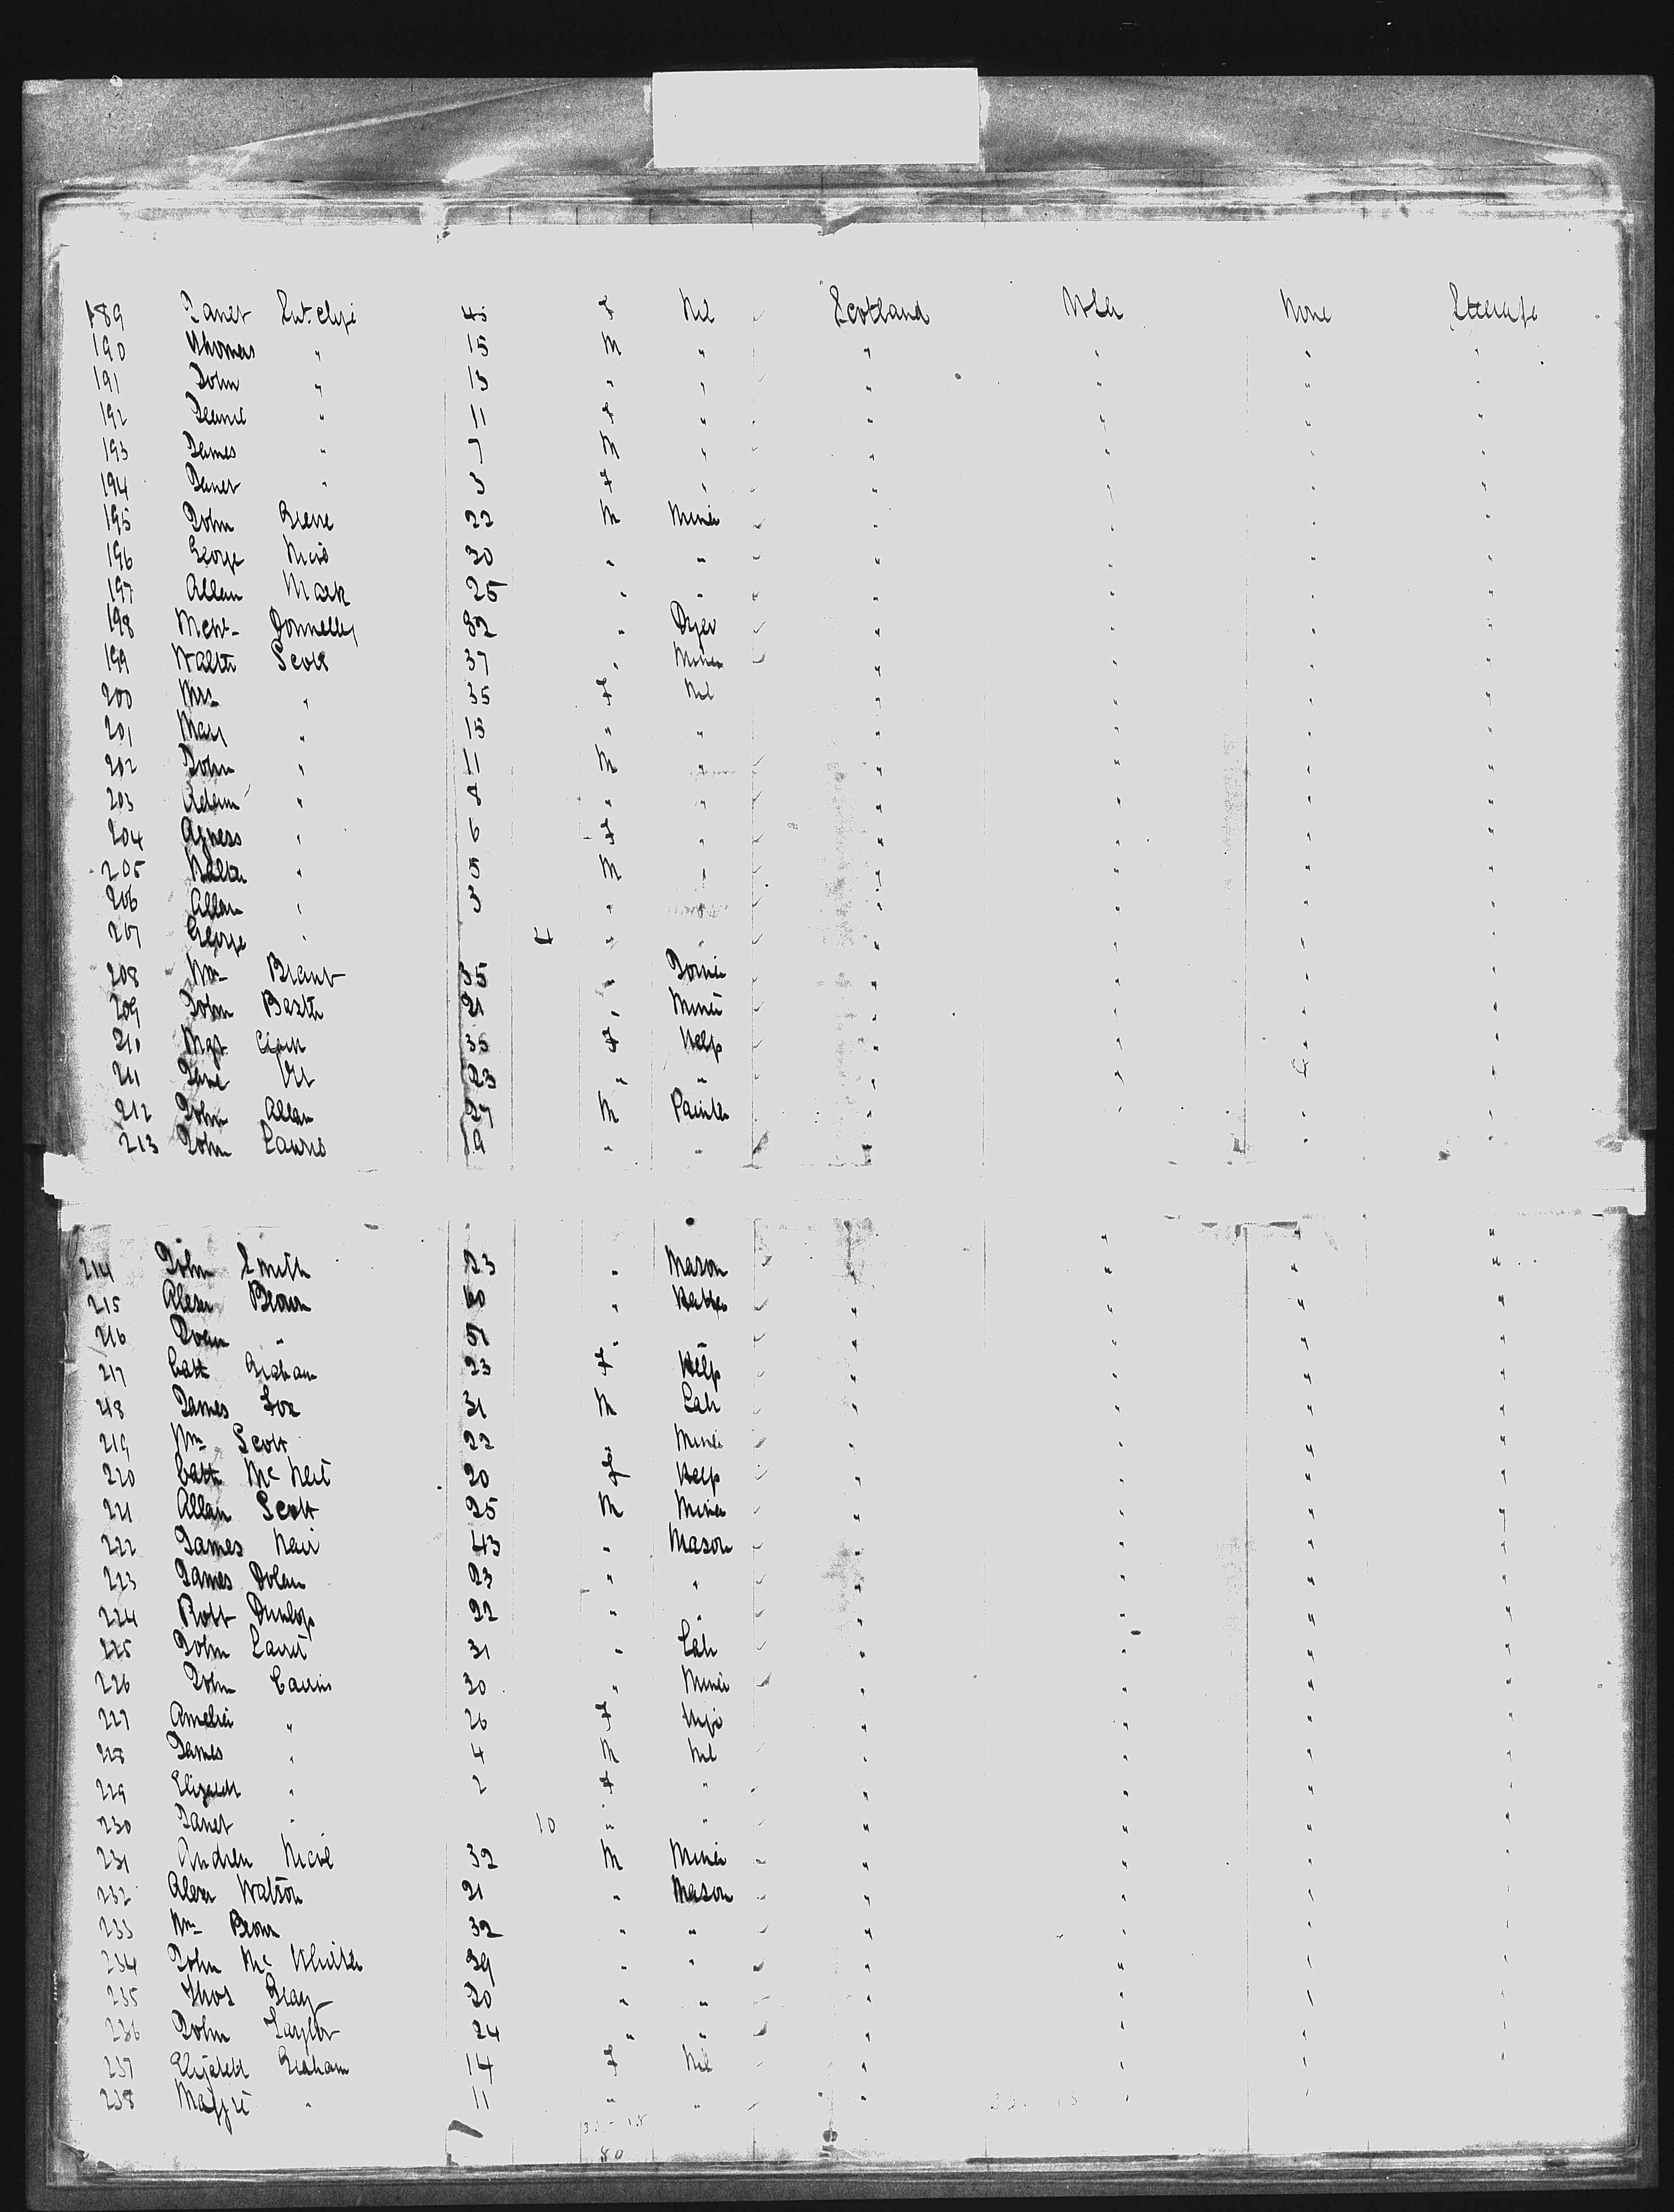 189 Janet Sutcliffe 45 F Nil Scotland USA None Steerage
190 Thomas " 15 M " " " " "
191 John " 13 " " " " " "
192 Jeanie " 11 F " " " " "
193 James " 7 M " " " " "
194 Janet " 3 F " " " " "
195 John 22 M Miner " " " "
196 George 30 " " " " " "
197 Allan Mark 25 " " " " " "
198 Donnelly 32 " Dyer " " " "
199 Walter Scott 37 " Miner " " " "
200 Mrs " 35 F Nil " " " "
201 Mary " 13 " " " " " "
202 John " 11 M " " " " "
203 Adam " 8 " " " " " "
204 Agness " 6 F " " " " "
205 Walter " 5 M " " " " "
206 Allan " 3 " " " " " "
207 George " 4 " " " " " "
208 Wm 35 " Joiner " " " "
209 John 21 " Miner " " " "
210 Mgt 35 F Help " " " "
211 Jane 23 " " " " " "
212 John Allan 27 M Painter " " " "
213 John 19 " " " " " "
214 John Smith 23 " Mason " " " "
215 Alexr Brown 60 " " " " "
216 " 51 " " " " " "
217 Cath Graham 23 F Help " " " "
218 James Fox 31 M Lab " " " "
219 Wm Scott 22 " Miner " " " "
220 Cath McNeil 20 F Help " " " "
221 Allan Scott 25 M Miner " " " "
222 James Nair 43 " Mason " " " "
223 James Dolan 23 " " " " " "
224 Robt Dunlop 22 " " " " " "
225 John 31 " Lab " " " "
226 John Cairns 30 " Miner " " " "
227 Amelia " 26 F Wife " " " "
228 James " 4 M Nil " " " "
229 Elizabeth " 2 F " " " " "
230 Janet " 10 " " " " " "
231 Andrew Nicol 32 M Miner " " " "
232 Alexr Watson 21 " Mason " " " "
233 Wm Brown 32 " " " " " "
234 John McWhirter 29 " " " " " "
235 Thos Gray 20 " " " " " "
236 John Taylor 24 " " " " " "
237 Elizabeth Graham 14 F Nil " " " "
238 Maggie " 11 " " " " " "
80